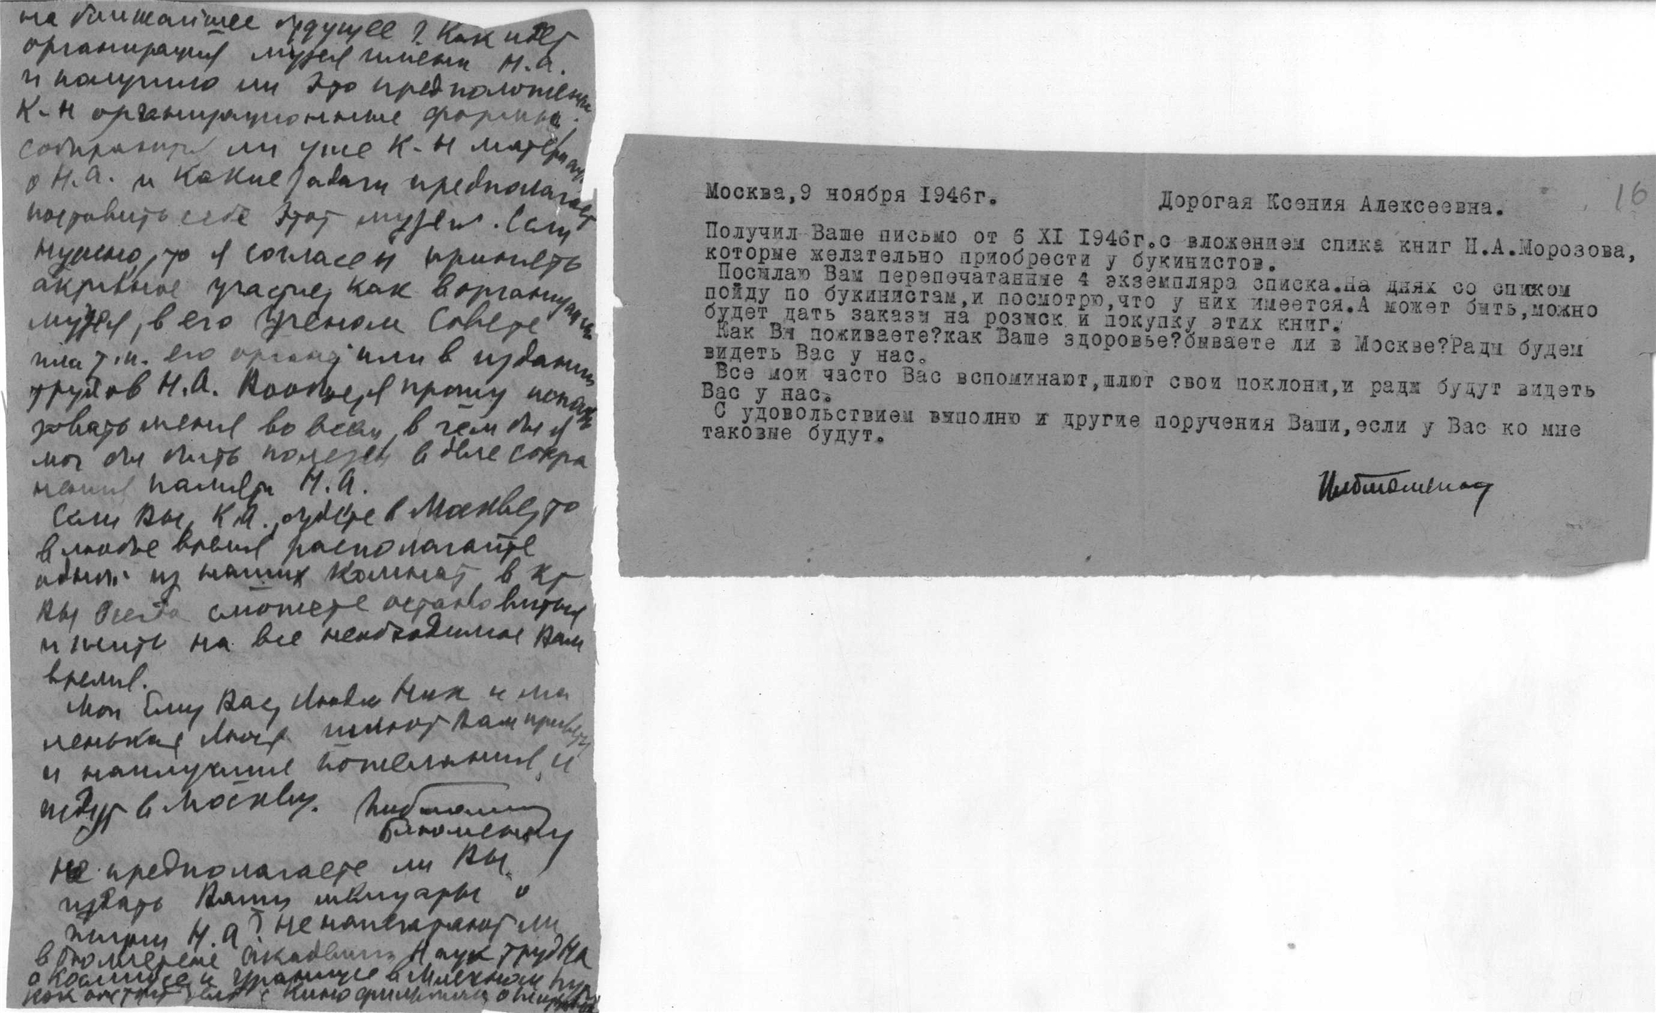 на ближайшее будущее? Как идет
организация музея имени Н.А.
и получило ли это предположение
к-н организационные формы,
собираются ли уже к-н материалы
о Н.А. и какие задачи предполагает
поставить себе этот музей. Если
нужно, то я согласен принять
активное участие, как в организации
музея, в его ученом совете
или в издании
трудов Н.А. Вообще я прошу исполь
зовать меня во всем, в чем бы я
мог бы быть полезен в деле сохра
нения памяти Н.А.
Если Вы, К.А., будете в Москве, то
в любое время располагайте
одной из наших комнат, в кт
Вы всегда сможете остановиться
и жить на все необходимое Вам
время.
Мои
ленькая шлют Вам приветы
и наилучшие пожелания, и
ждут в Москву.
Не предполагаете ли Вы
издать Ваши мемуары о
жизни Н.А? Не напечатают ли
в Академии Наук труд НА
о космосе и
16
Москва,9 ноября 1946г. Дорогая Ксения Алексеевна.
Получил Ваше письмо от 6 XI 1946г.с вложением спика книг Н.А.Морозова,
которые желательно приобрести у букинистов.
Посылаю Вам перепечатанные 4 экземпляра списка.На днях со списком
пойду по букинистам,и посмотрю,что у них имеется.А может быть,можно
будет дать заказы на розыск и покупку этих книг.
Как Вы поживаете?как Ваше здоровье?бываете ли в Москве?Рады будем
видеть Вас у нас.
Все мои часто Вас вспоминают,шлют свои поклоны,и рады будут видеть
Вас у нас.
С удовольствием выполню и другие поручения Ваши,если у Вас ко мне
таковые будут.